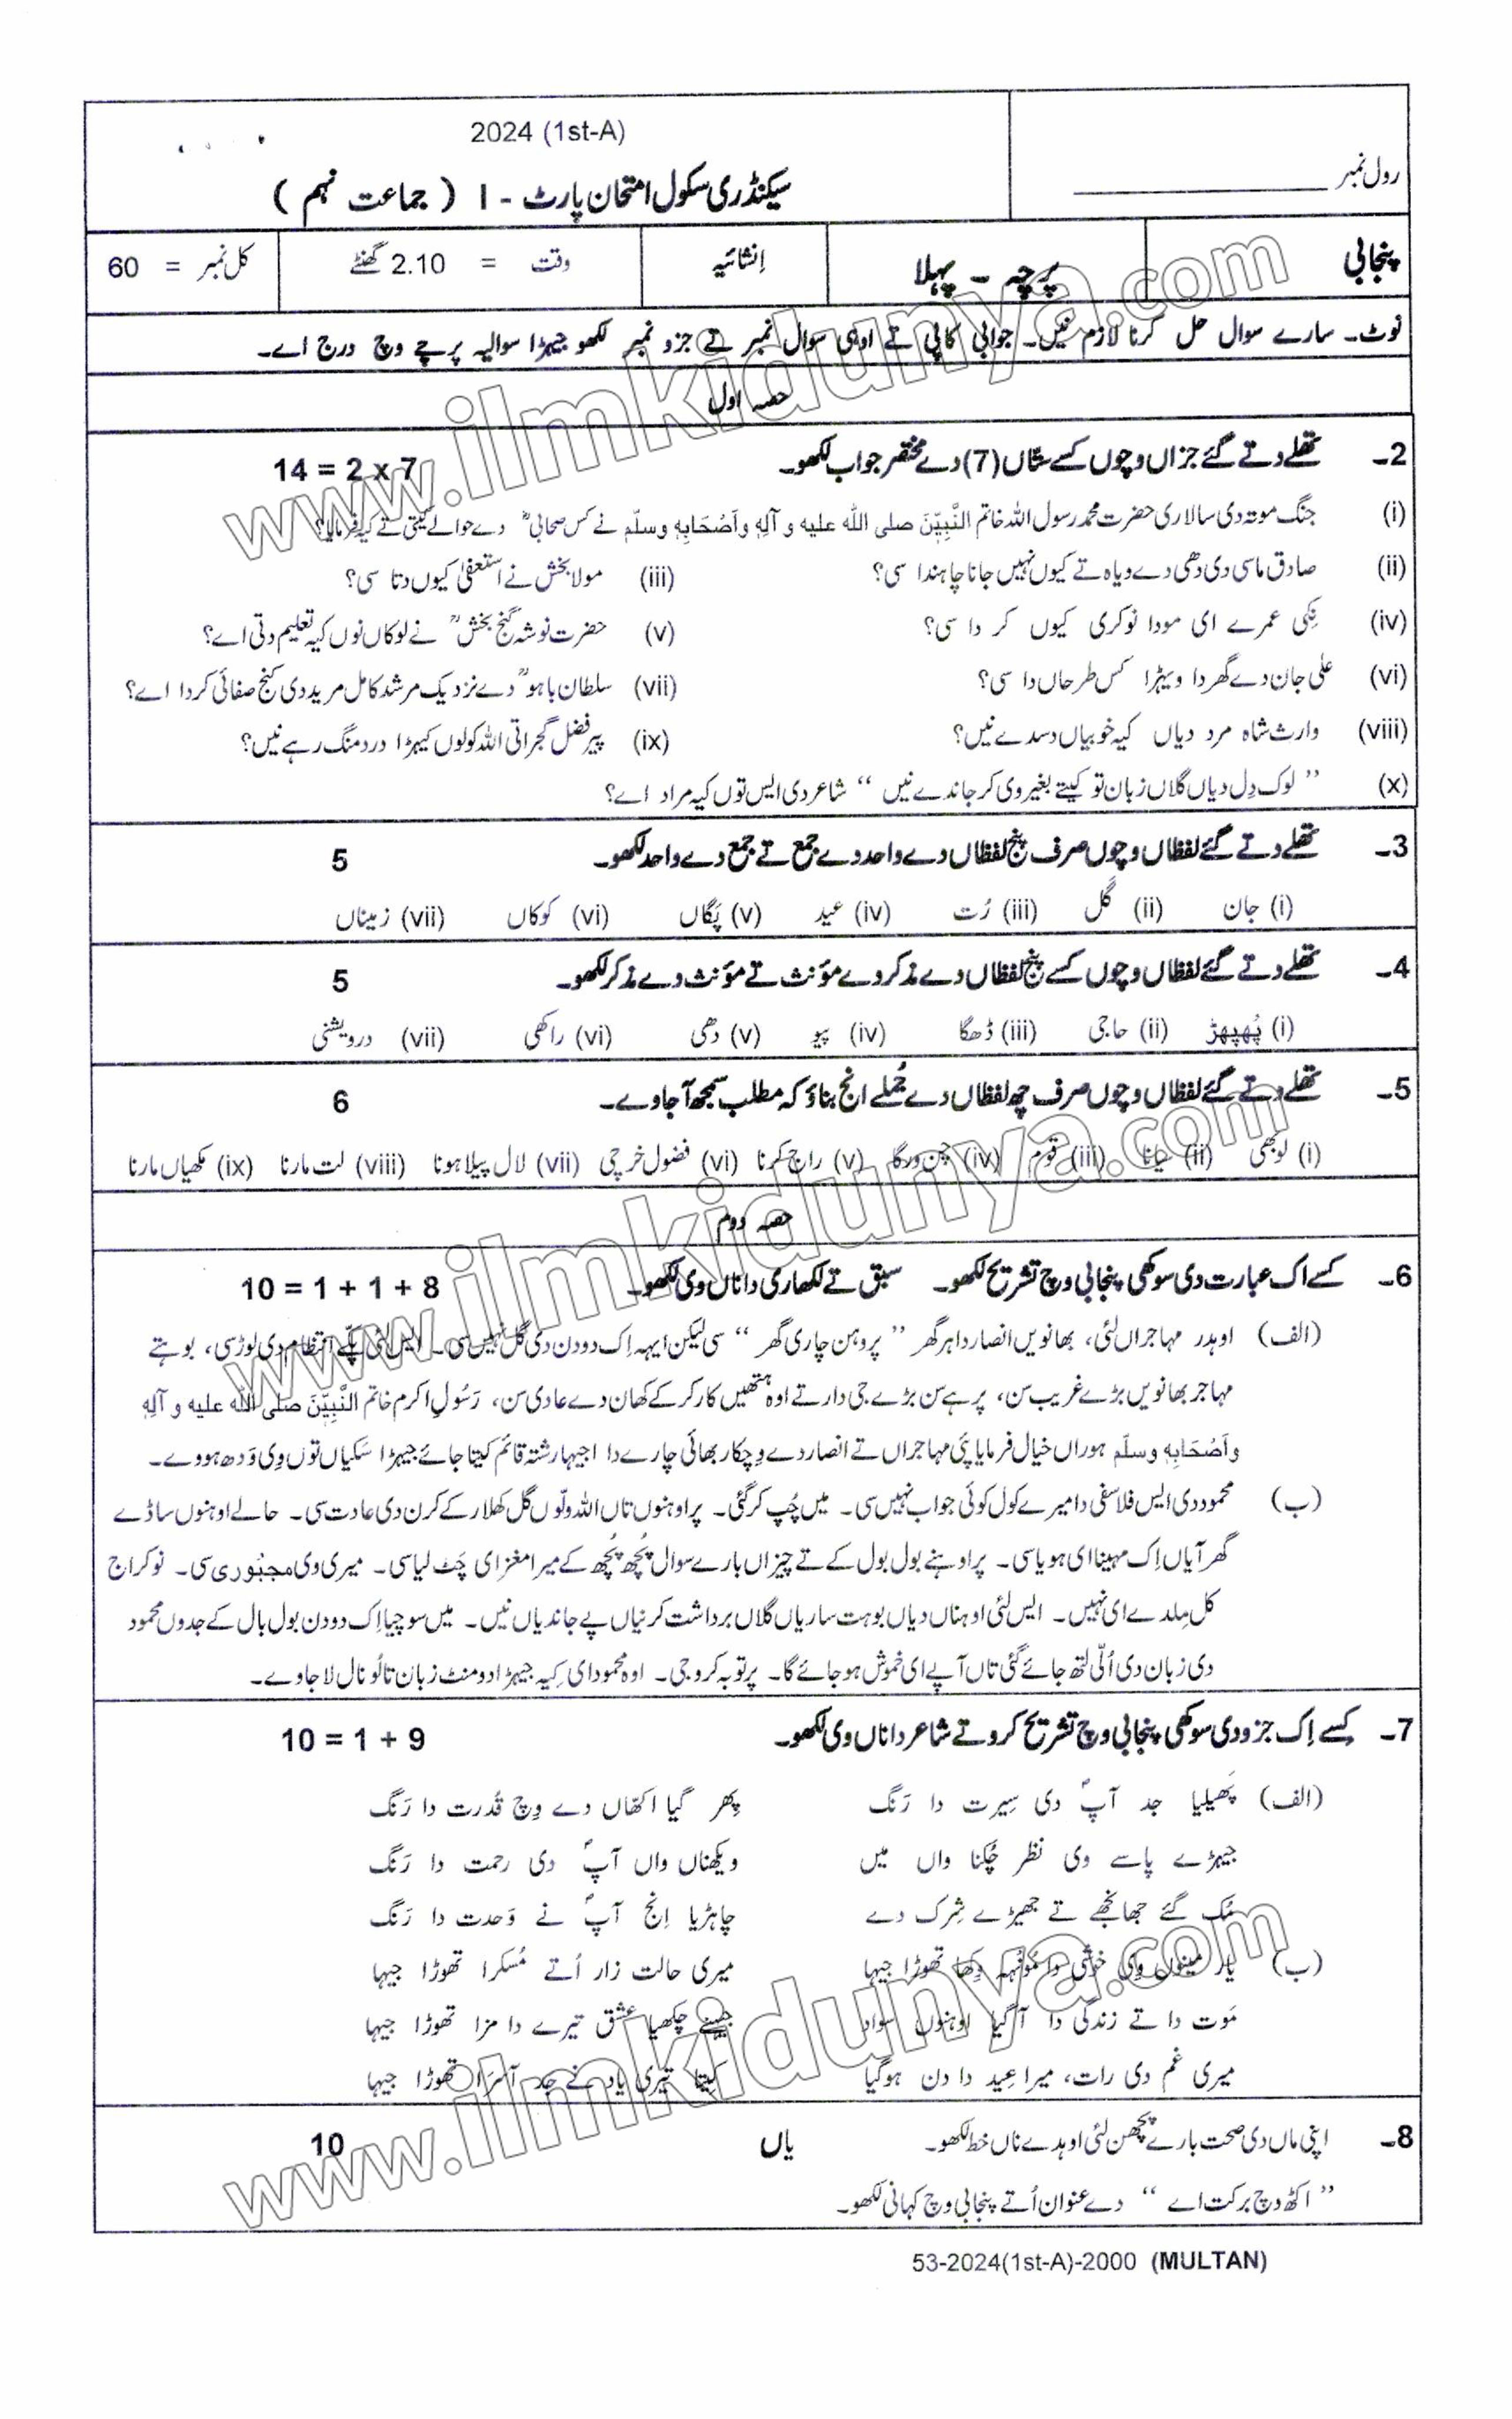 2024 (1st-A)
رول نمبر
سیکنڈری سکول امتحان پارٹ - I ( جماعت نہم )
پنجابی پرچہ - پہلا اِنشائیہ وقت = 2.10 گھنٹے کل نمبر = 60
نوٹ۔ سارے سوال حل کرنا لازم نیں۔ جوابی کاپی تے اوہی سوال نمبر تے جزو نمبر لکھو جیہڑا سوالیہ پرچے وچ درج اے۔
حصہ اول
2۔ تھلے دتے گئے جزاں وچوں کسے ستّاں (7) دے مختصر جواب لکھو۔ 14 = 2 x 7
(i) جنگ موتہ دی سالاری حضرت محمد رسول اللہ خاتم النَّبِیّٖنَ صلی اللہ علیہ و آلہٖ واَصْحَابِہٖ وسلّم نے کس صحابیؓ دے حوالے کیتی تے کیہ فرمایا؟
(ii) صادق ماسی دی دھی دے ویاہ تے کیوں نہیں جانا چاہندا سی؟ (iii) مولا بخش نے استعفیٰ کیوں دتا سی؟
(iv) نِکی عمرے ای مودا نوکری کیوں کر دا سی؟ (v) حضرت نوشہ گنج بخشؒ نے لوکاں نوں کیہ تعلیم دتی اے؟
(vi) علی جان دے گھر دا ویہڑا کس طرحاں دا سی؟ (vii) سلطان باہوؒ دے نزدیک مرشد کامل مرید دی کنج صفائی کردا اے؟
(viii) وارث شاہ مرد دیاں کیہ خوبیاں دسدے نیں؟ (ix) پیر فضل گجراتی اللہ کولوں کیہڑا درد منگ رہے نیں؟
(x) ’’ لوک دِل دیاں گلاں زبان تو کیتے بغیر وی کر جاندے نیں ‘‘ شاعر دی ایس توں کیہ مراد اے؟
3۔ تھلے دتے گئے لفظاں وچوں صرف پنج لفظاں دے واحد دے جمع تے جمع دے واحد لکھو۔ 5
(i) جان (ii) گَل (iii) رُت (iv) عید (v) پگاں (vi) کوکاں (vii) زمیناں
4۔ تھلے دتے گئے لفظاں وچوں کسے پنج لفظاں دے مذکر دے مؤنث تے مؤنث دے مذکر لکھو۔ 5
(i) پُھپھڑ (ii) حاجی (iii) ڈھگا (iv) پیو (v) دھی (vi) راکھی (vii) درویشنی
5۔ تھلے دتے گئے لفظاں وچوں صرف چھ لفظاں دے جُملے انج بناؤ کہ مطلب سمجھ آ جاوے۔ 6
(i) لوبھی (ii) (iii) قوم (iv) چن ورگا (v) راج کرنا (vi) فضول خرچی (vii) لال پیلا ہونا (viii) لت مارنا (ix) مکھیاں مارنا
حصہ دوم
6۔ کسے اک عبارت دی سوکھی پنجابی وچ تشریح لکھو۔ سبق تے لکھاری دا ناں وی لکھو۔ 10 = 1 + 1 + 8
(الف) اوہدر مہاجراں لئی، بھانویں انصار دا ہر گھر ’’ پروہن چاری گھر ‘‘ سی لیکن ایہہ اِک دو دن دی گل نہیں سی۔ ایس لئی پکّے انتظام دی لوڑ سی، بوہتے
مہاجر بھانویں بڑے غریب سن، پر ہے سن بڑے جی دار تے اوہ ہتھیں کار کر کے کھان دے عادی سن، رَسُولِ اکرم خاتم النَّبِیّٖنَ صلی اللہ علیہ و آلہٖ
واَصْحَابِہٖ وسلّم ہوراں خیال فرمایا پئی مہاجراں تے انصار دے وِچکار بھائی چارے دا اجیہا رشتہ قائم کیتا جائے جیہڑا سَکیاں توں وِی وَدھ ہووے۔
(ب) محمود دی ایس فلاسفی دا میرے کول کوئی جواب نہیں سی۔ میں چُپ کر گئی۔ پر اوہنوں تاں اللہ ولّوں گل کھلار کے کرن دی عادت سی۔ حالے اوہنوں ساڈے
گھر آیاں اِک مہینا ای ہویا سی۔ پر اوہنے بول بول کے تے چیزاں بارے سوال پُچھ پُچھ کے میرا مغز ای چَٹ لیا سی۔ میری وی مجبُوری سی۔ نوکر اج
کل مِلدے ای نہیں۔ ایس لئی اوہناں دیاں بوہت ساریاں گلاں برداشت کرنیاں پے جاندیاں نیں۔ میں سوچیا اِک دو دن بول بال کے جدوں محمود
دی زبان دی اُلّی لتھ جائے گئی تاں آپے ای خموش ہو جائے گا۔ پر توبہ کرو جی۔ اوہ محمود ای کِیہ جیہڑا دو منٹ زبان تالُو نال لا جاوے۔
7۔ کسے اِک جزو دی سوکھی پنجابی وچ تشریح کرو تے شاعر دا ناں وی لکھو۔ 10 = 1 + 9
(الف) پَھیلیا جد آپؐ دی سِیرت دا رَنگ پِھر گیا اکھّاں دے وِچ قُدرت دا رَنگ
جیہڑے پاسے وی نظر چُکنا واں میں ویکھناں واں آپؐ دی رحمت دا رَنگ
مُک گئے جھانجھے تے جھیڑے شِرک دے چاہڑیا اِنج آپؐ نے وَحدت دا رَنگ
(ب) یار مینوں وِی خوشی دا مُونہہ وِکھا تھوڑا جیہا میری حالت زار اُتے مُسکرا تھوڑا جیہا
مَوت دا تے زندگی دا آ گیا اوہنوں سواد جہنے چکھیا عشق تیرے دا مزا تھوڑا جیہا
میری غم دی رات، میرا عِید دا دن ہو گیا کیتا تیری یاد نے جد آسرا تھوڑا جیہا
8۔ اپنی ماں دی صحت بارے پچھن لئی اوہدے ناں خط لکھو۔ یاں 10
’’ اکٹھ وچ برکت اے ‘‘ دے عنوان اُتے پنجابی وچ کہانی لکھو۔
53-2024(1st-A)-2000 (MULTAN)
www.ilmkidunya.com
www.ilmkidunya.com
www.ilmkidunya.com